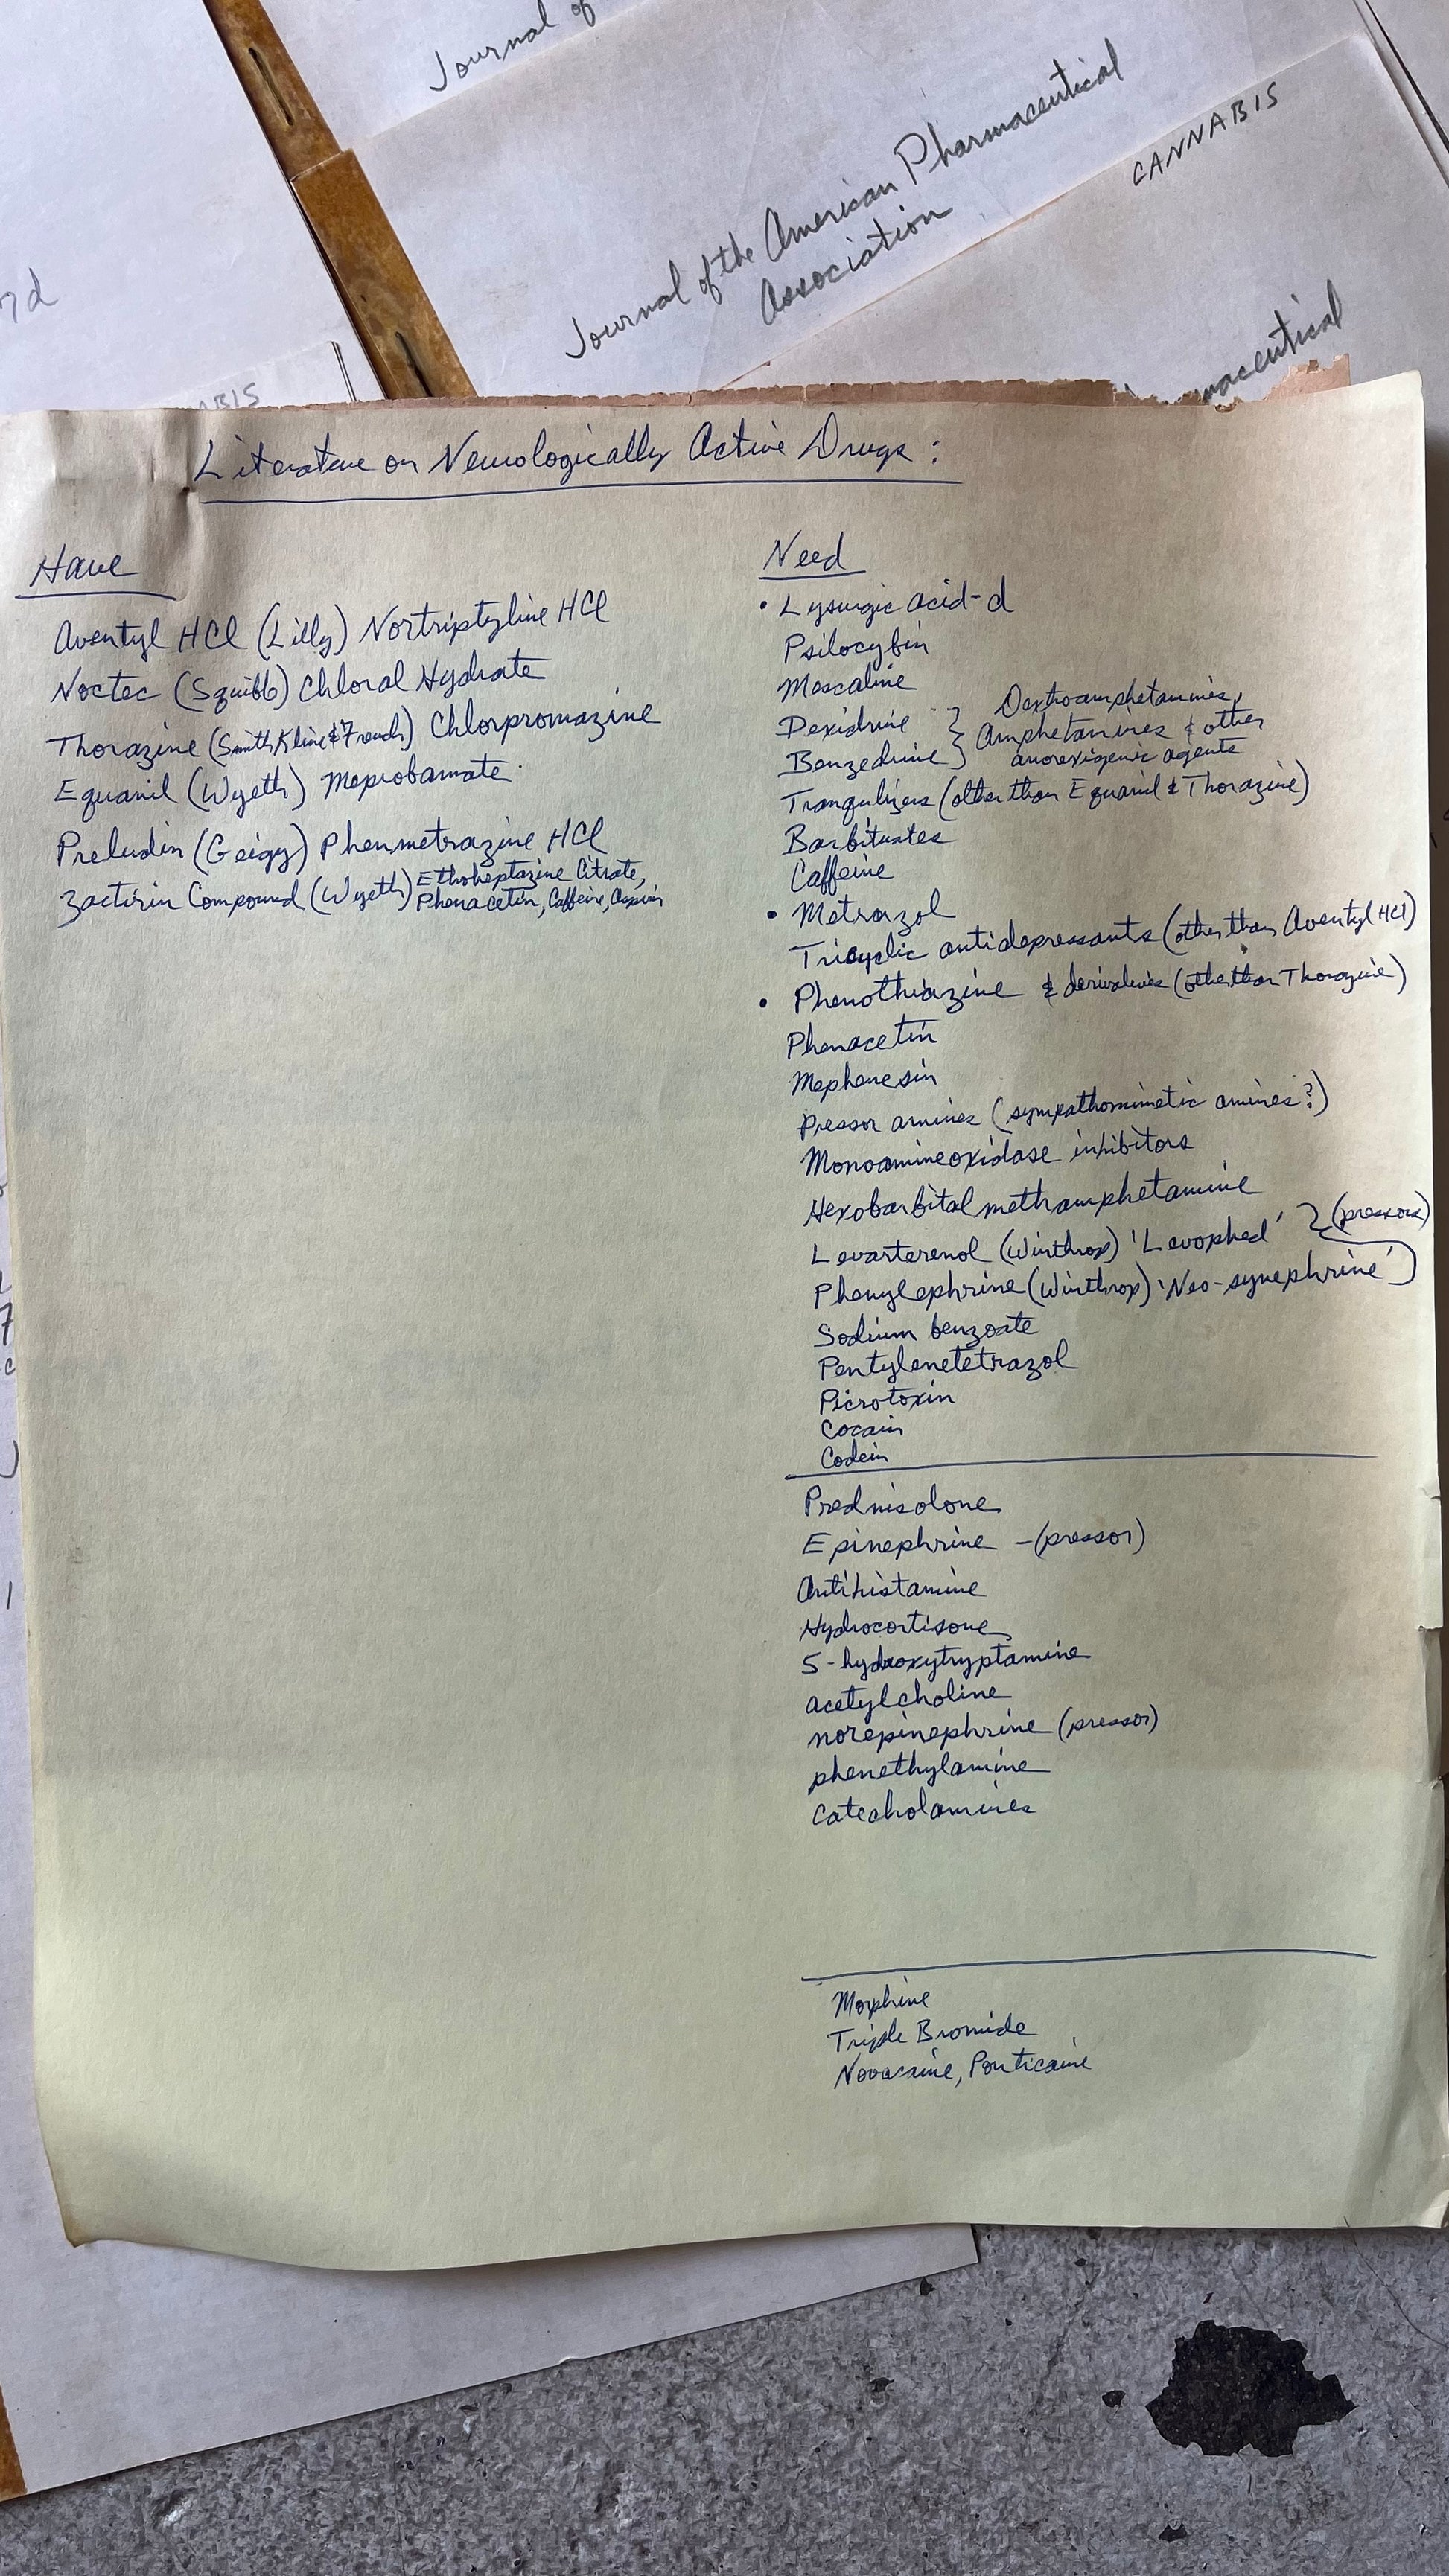 Journal of
Journal of the American Pharmaceutical
Association
CANNABIS
maceutical
nd
ABIS
Literature on Neurologically Active Drugs:
Have
Aventyl HCl (Lilly) Nortriptyline HCl
Noctec (Squibb) Chloral Hydrate
Thorazine (Smith Kline & French) Chlorpromazine
Equanil (Wyeth) Meprobamate
Preludin (Geigy) Phenmetrazine HCl
Zactirin Compound (Wyeth) Ethoheptazine Citrate,
Phenacetin, Caffeine, Aspirin
Need
• Lysurgic acid-d
Psilocybin
Mescaline
Dexidrine } Dextroamphetamines,
Benzedrine } Amphetamines & other
anorexigenic agents
Tranqulizers (other than Equanil & Thorazine)
Barbituates
Caffeine
• Metrazol
Tricyclic antidepressants (other than Aventyl HCl)
• Phenothiazine & derivatives (other than Thorazine)
Phenacetin
Mephenesin
Pressor amines (sympathomimetic amines?)
Monoamineoxidase inhibitors
Hexobarbital methamphetamine
Levarterenol (Winthrop) 'Levophed' } (pressors)
Phenylephrine (Winthrop) 'Neo-synephrine'
Sodium benzoate
Pentylenetetrazol
Picrotoxin
Cocain
Codein
Prednisolone
Epinephrine - (pressor)
Antihistamine
Hydrocortisone
5-hydroxytryptamine
acetylcholine
norepinephrine (pressor)
phenethylamine
Catecholamines
Morphine
Triple Bromide
Novacaine, Ponticaine